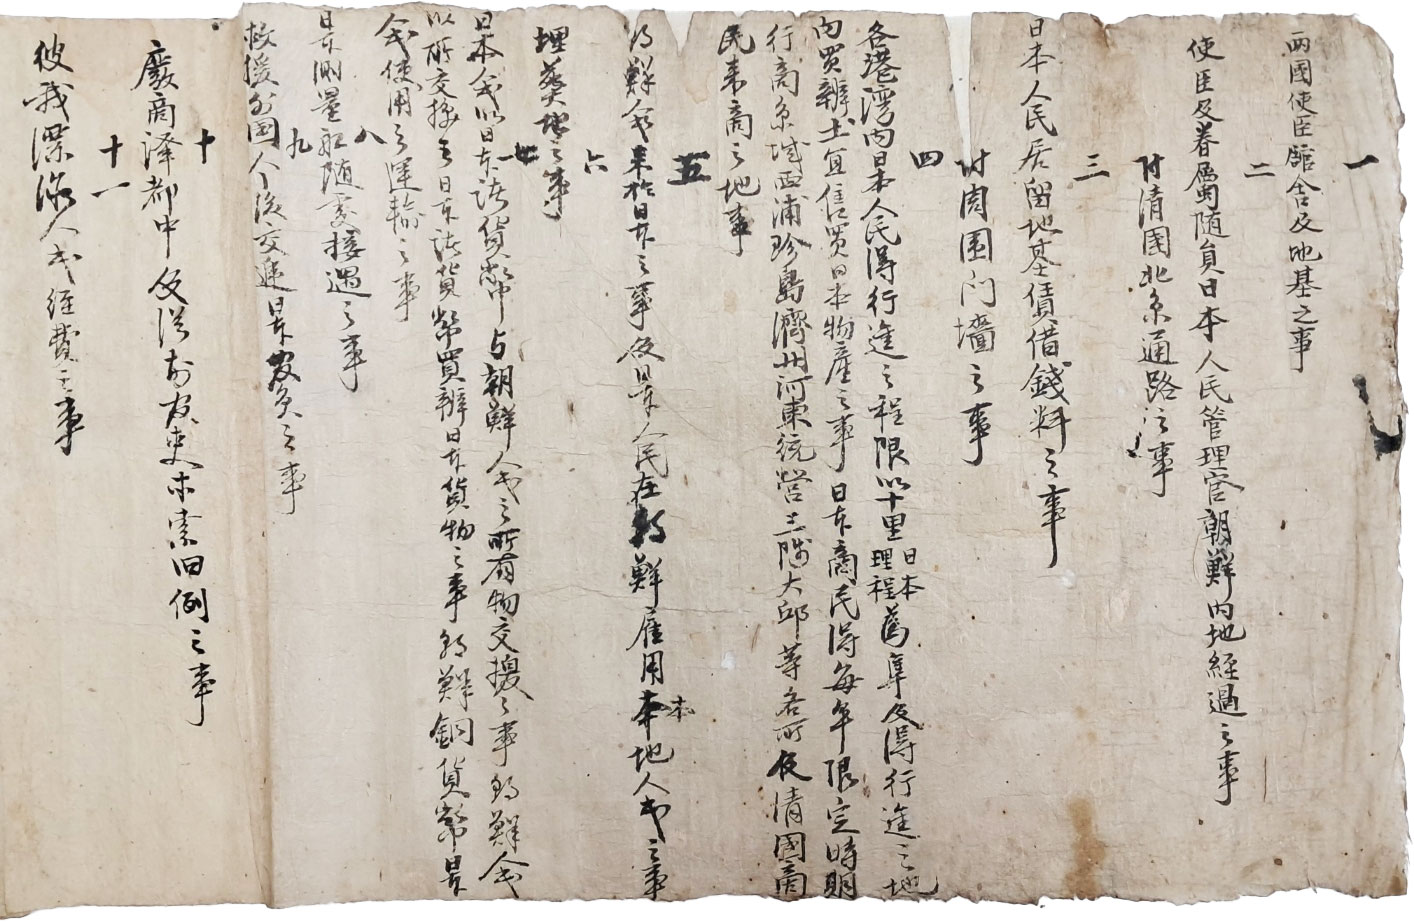 一
兩國使臣館舍及地基之事
二
使臣及眷屬随員日本人民管理官朝鮮內地經過之事
附清國北京通路之事
三
日本人民居留地基債借錢料之事
附周囲门墻之事
四
各港湾内日本人民得行進之程限以十里日本理程舊準及得行進之地
向買辦土宜售買日本物產之事日本商民得每年限定時期
行商京城西浦珍島濟州河東統營三陟大邱等各所及清國商
民來商之地事
五
朝鮮人民来於日本之事及日本人民在朝鮮雇用本地人民之事
六
埋葬地之事
七
日本人民以日本諸貨幣与朝鮮人民之所有物交換之事朝鮮人民
以所交換之日本諸貨幣買辦日本貨物之事朝鮮銅貨幣日本
人民使用之運輸之事
八
日本測量船随家接遇之事
九
救援外国人後交遞日本官員之事
十
廢商譯都中及浴前官吏求索旧例之事
十一
彼我漂流人民經費之事